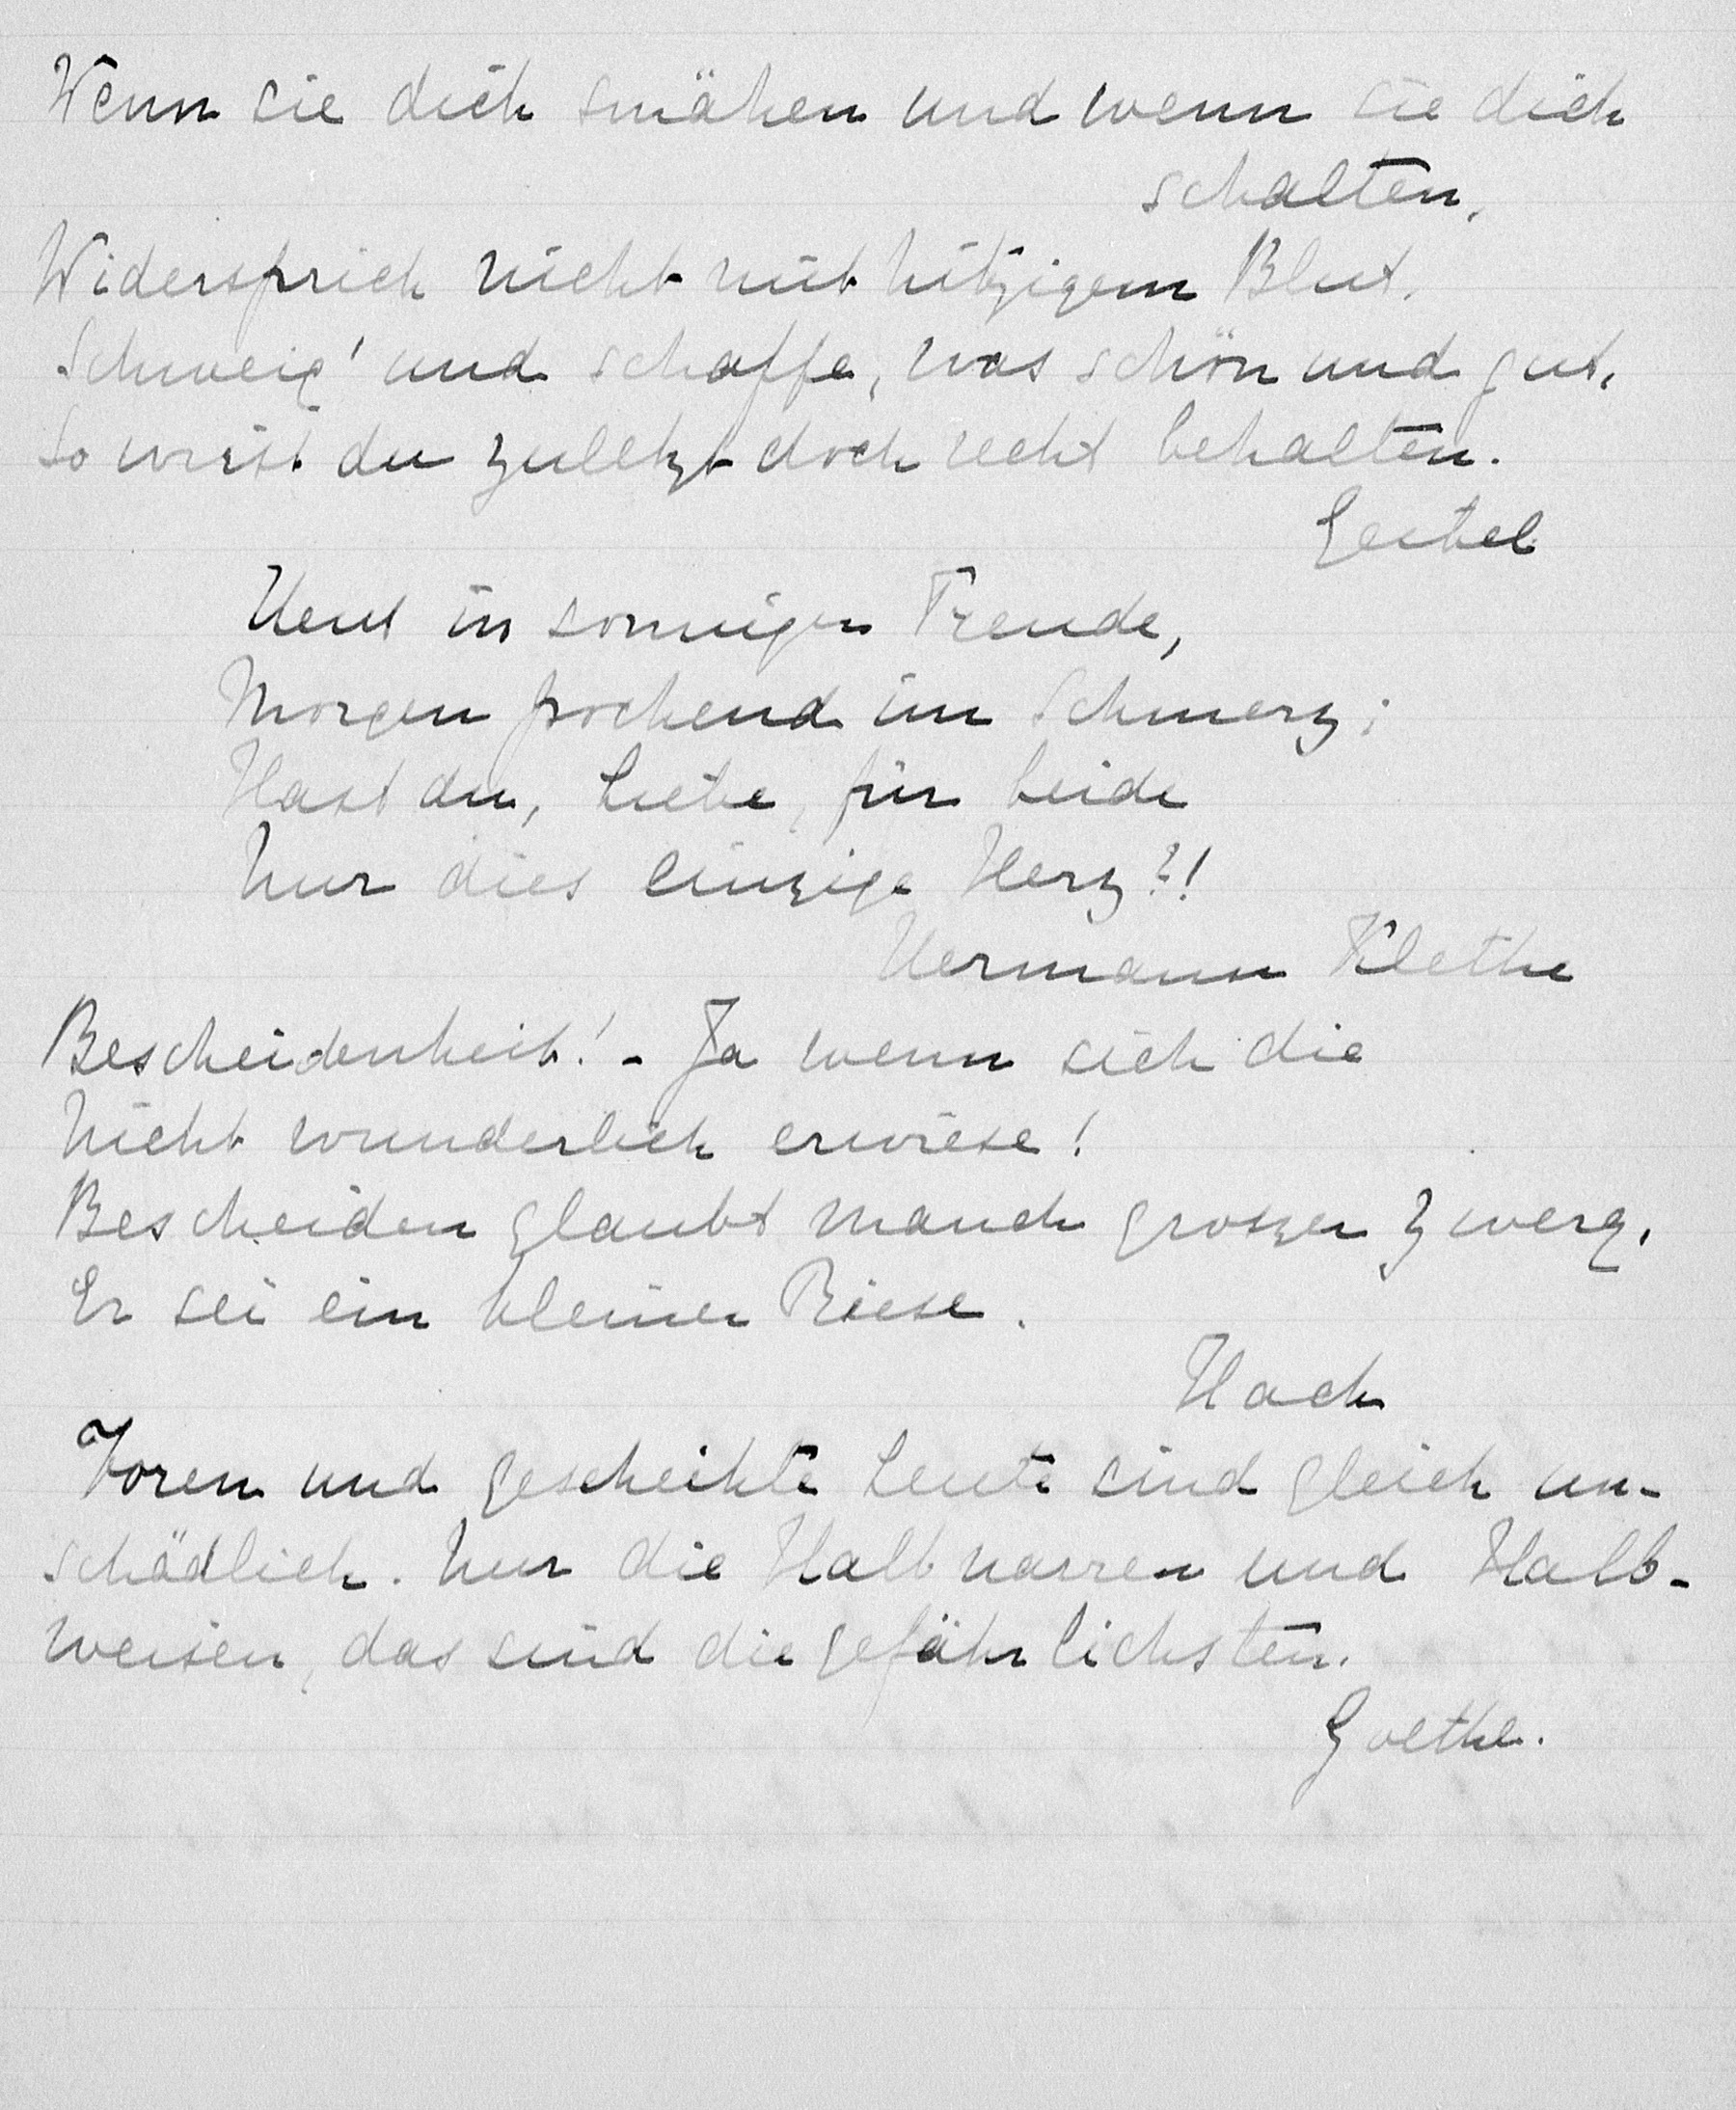 Wenn sie dich smähen und wenn sie dich
schalten,
Widersprich nicht mit hitzigem Blut.
Schweig' und schaffe, was schön und gut,
So wirst du zuletzt doch recht behalten.
Geibel
Heut in sonniger Freude,
Morgen pochend im Schmerz;
Hast du, Liebe, für beide
Nur dies einzige Herz?!
Hermann Klethe
Bescheidenheit! - Ja wenn sich die
Nicht wunderlich erwiese!
Bescheiden glaubt manch groszer Zwerg,
Er sei ein kleiner Riese.
Hach
Toren und gescheihte Leute sind gleich un-
schädlich. Nur die Halbnarren und Halb-
weisen, das sind die gefährlichsten.
Goethe.